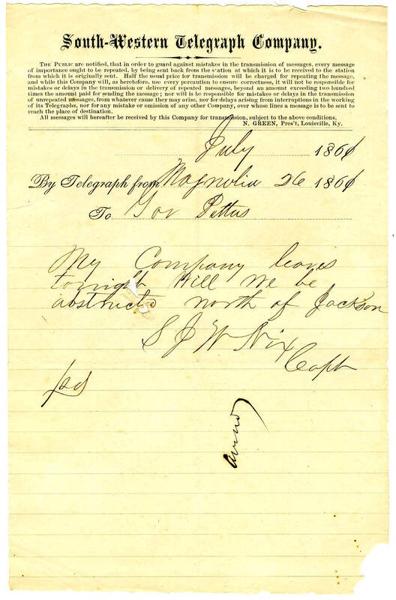 South-Western Telegraph Company.
THE PUBLIC are notified, that in order to guard against mistakes in the transmission of messages, every message
of importance ought to be repeated, by being sent back from the station at which it is to be received to the station
from which it is originally sent. Half the usual price for transmission will be charged for repeating the message,
and while this Company will, as heretofore, use every precaution to ensure correctness, it will not be responsible for
mistakes or delays in the transmission or delivery of repeated messages, beyond an amount exceeding two hundred
times the amount paid for sending the message; nor will it be responsible for mistakes or delays in the transmission
of unrepeated messages, from whatever cause they may arise, nor for delays arising from interruptions in the working
of its Telegraphs, nor for any mistake or omission of any other Company, over whose lines a message is to be sent to
reach the place of destination.
All messages will hereafter be received by this Company for transmission, subject to the above conditions.
N. GREEN, Pres't, Louisville, Ky.
July 1861
By Telegraph from Magnolia 26 1861
To Gov Pettus
My Company leaves
tonight Will we be
obstructd north of Jackson
S J W Nix
Capt